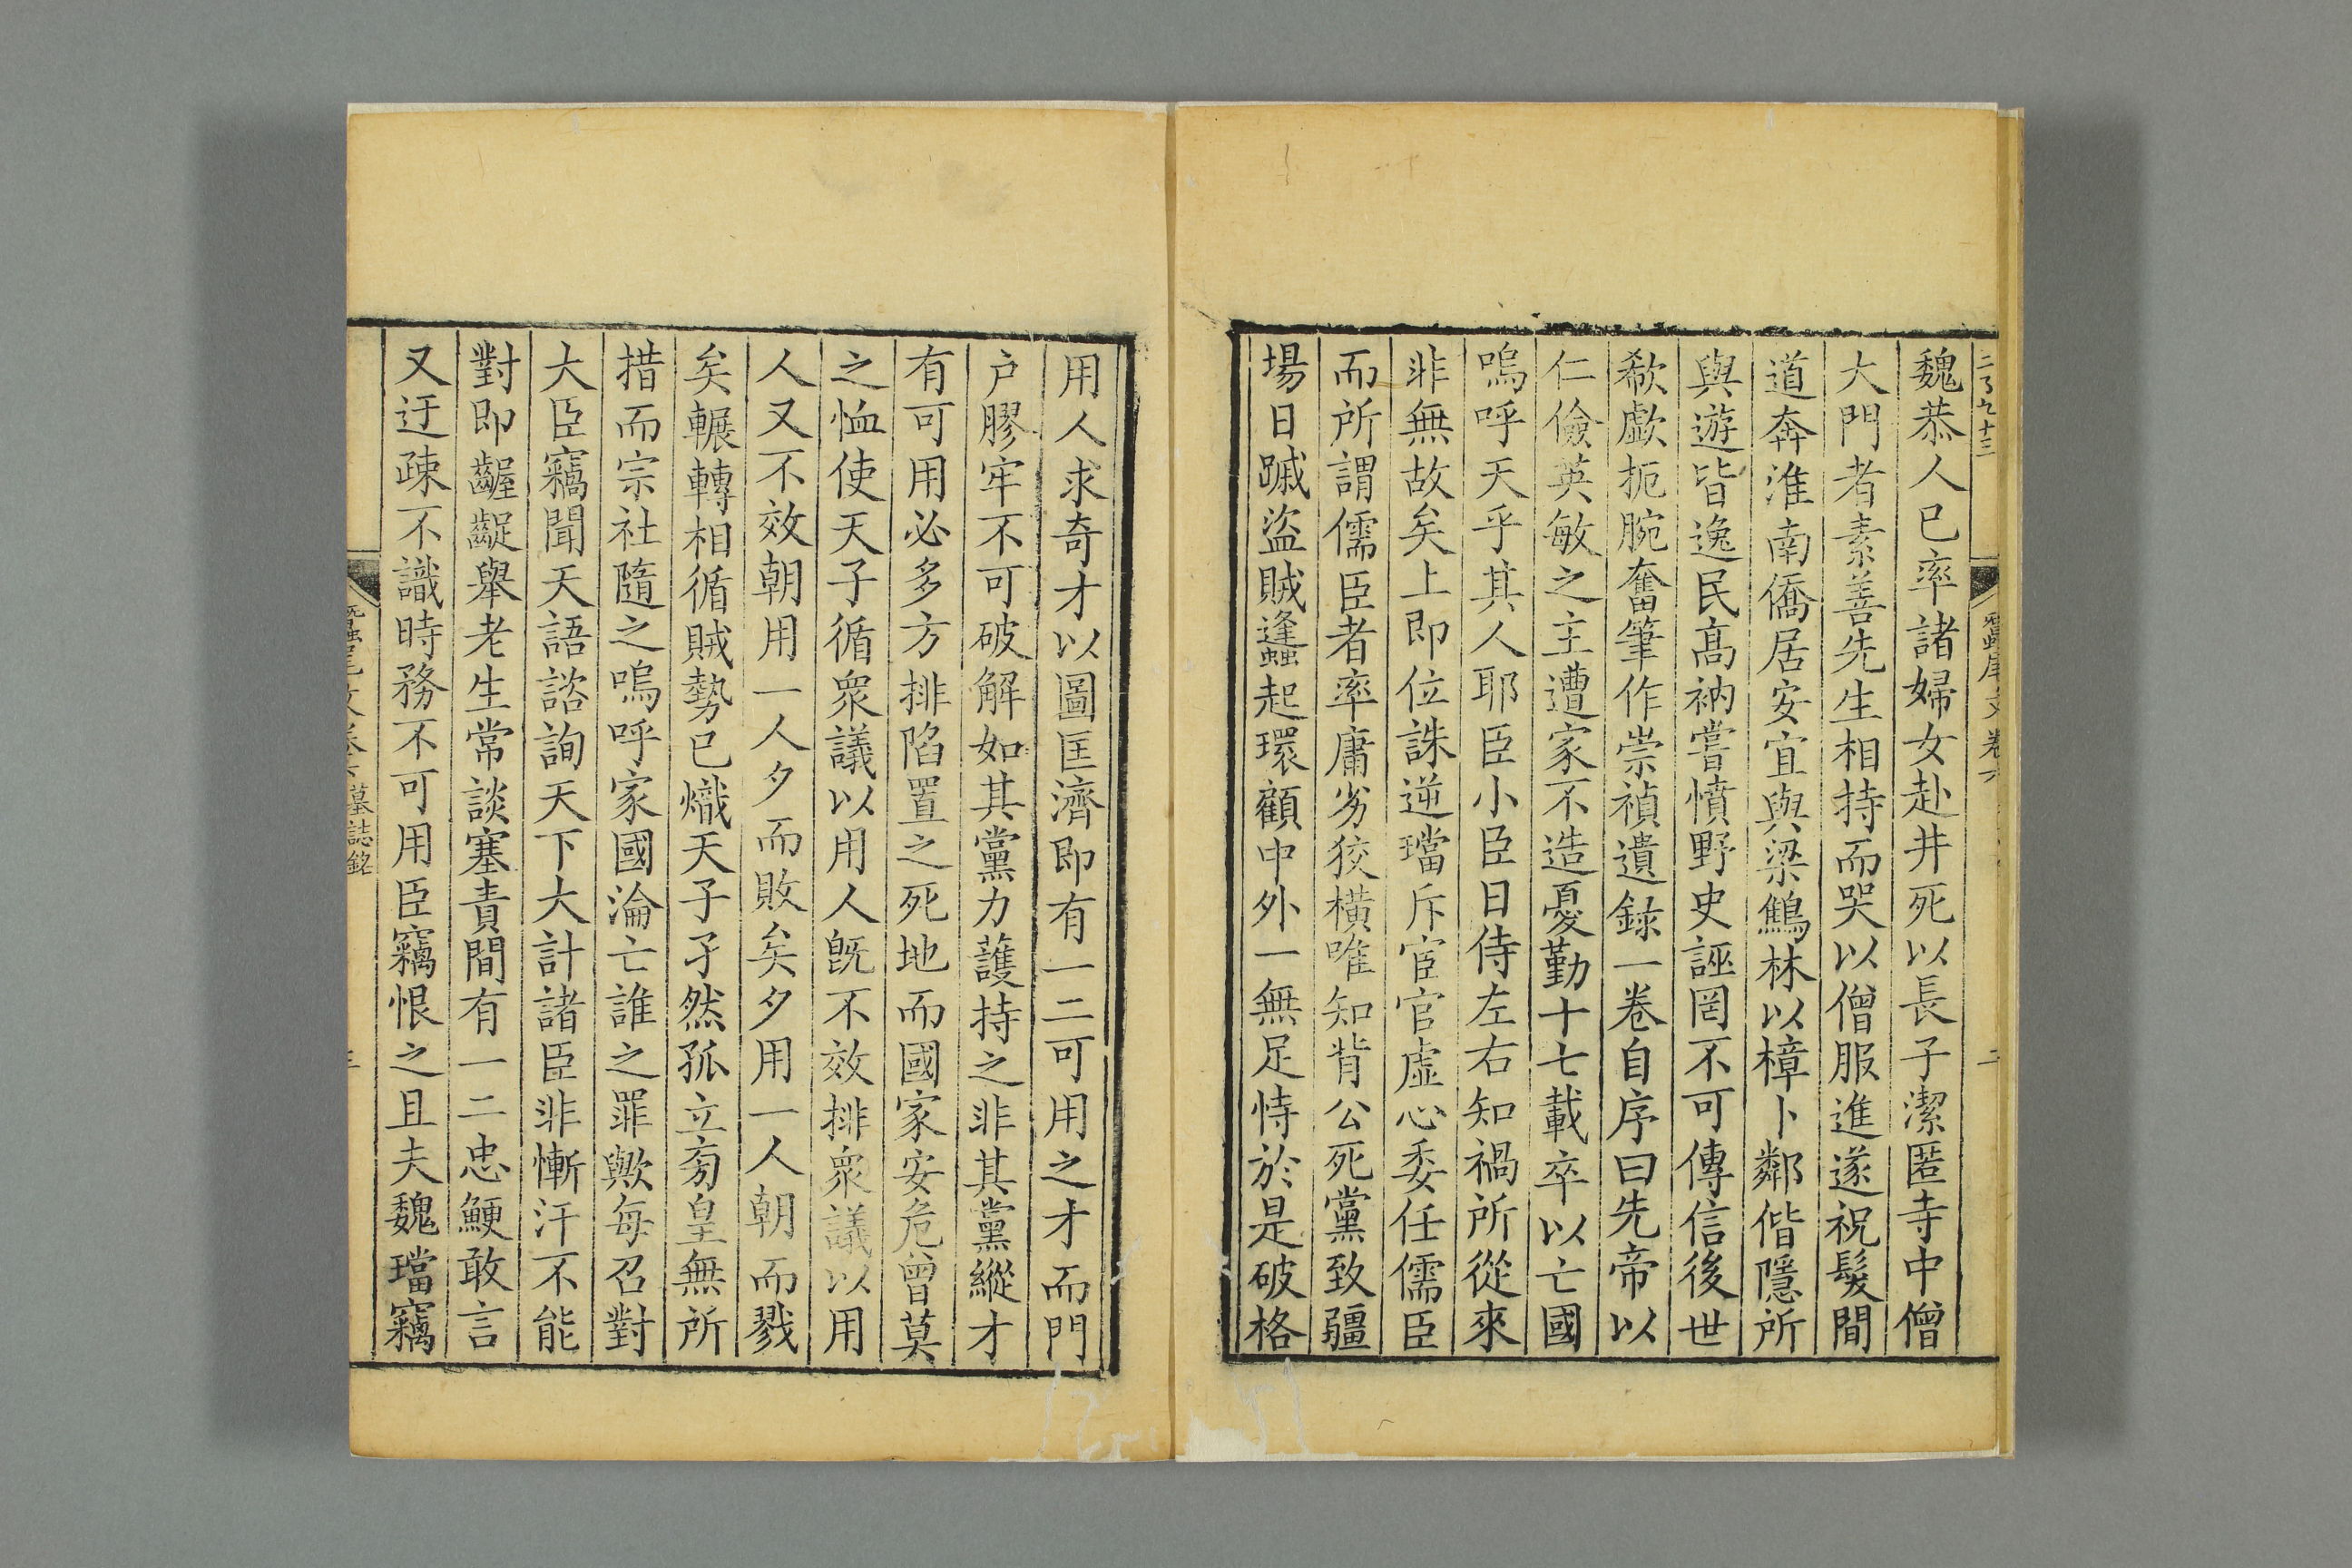 魏恭人已率諸婦女赴井死以長子潔匿寺中僧
大門者素善先生相持而哭以僧服進遂祝髮間
道奔淮南僑居安宜與梁鷦林以樟卜鄰偕隱所
與遊皆逸民高衲嘗憤野史誣罔不可傳信後世
欷歔扼腕奮筆作崇禎遺錄一卷自序曰先帝以
仁儉英敏之主遭家不造憂勤十七載卒以亡國
嗚呼天乎其人耶臣小臣日侍左右知禍所從來
非無故矣上即位誅逆璫斥宦官虛心委任儒臣
而所謂儒臣者率庸劣狡橫唯知背公死黨致疆
場日蹙盜賊蠭起環顧中外一無足恃於是破格
用人求奇才以圖匡濟即有一二可用之才而門
户膠牢不可破解如其黨力護持之非其黨縱才
有可用必多方排陷置之死地而國家安危曾莫
之恤使天子循眾議以用人旣不效排眾議以用
人又不效朝用一人夕而敗矣夕用一人朝而戮
矣輾轉相循賊勢已熾天子孑然孤立旁皇無所
措而宗社隨之嗚呼家國淪亡誰之罪歟每召對
大臣竊聞天語諮詢天下大計諸臣非慚汗不能
對即齷齪舉老生常談塞責間有一二忠鯁敢言
又迂疎不識時務不可用臣竊恨之且夫魏璫竊
墓誌銘